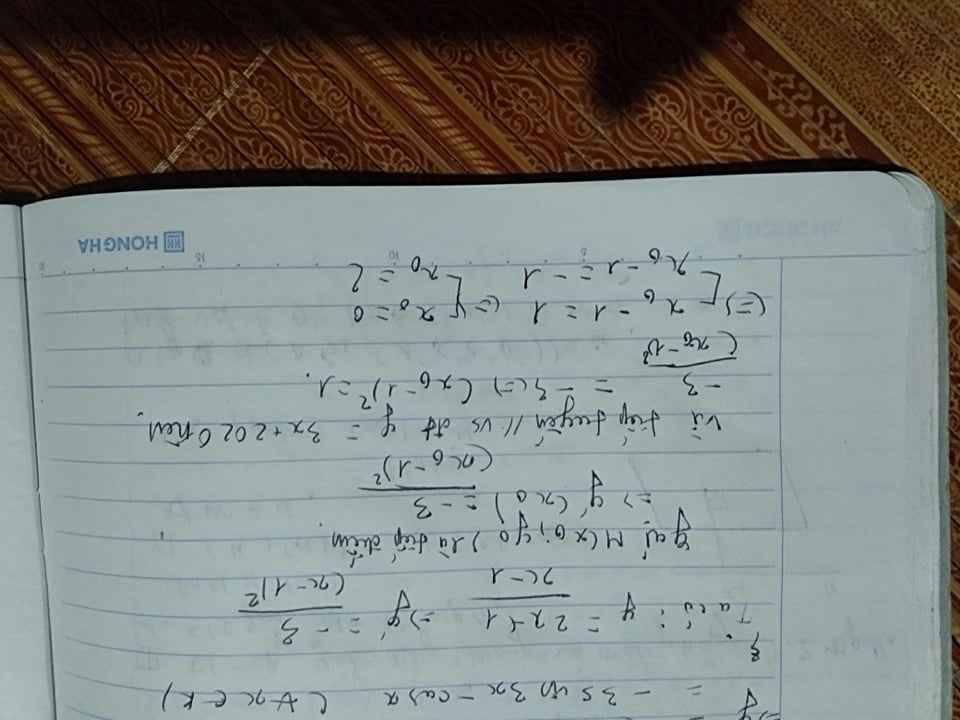 => y'
= -3sin3x - cosx (∀x ∈ k)
3.
Ta có: y = 2x+1 / x-1 => y' = -3 / (x-1)²
Gọi M(x₀; y₀) là tiếp điểm
=> y'(x₀) = -3 / (x₀-1)²
Vì tiếp tuyến // vs đt y = 3x+2020 nên
-3 / (x₀-1)² = -3 (=) (x₀-1)² = 1.
(=) [ x₀ - 1 = 1 (=) [ x₀ = 0
x₀ - 1 = -1 x₀ = 2
5 10 15
HONG HA